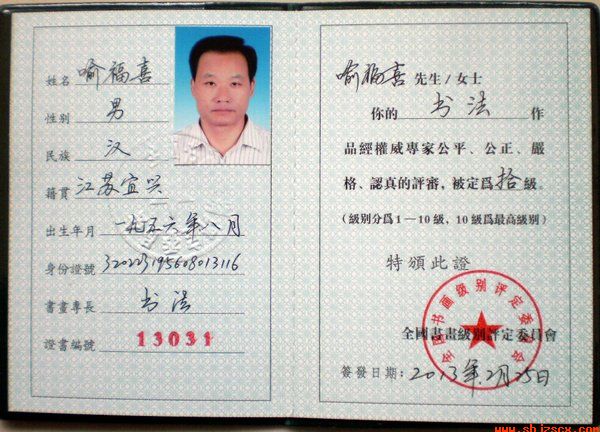 姓名 喻福喜
性别 男
民族 汉
籍貫 江苏宜兴
出生年月 一九五六年八月
身份證號 320223195608013116
書畫專長 书法
證書編號 13031
喻福喜 先生/女士
你的 书法 作
品經權威專家公平、公正、嚴
格、認真的評審，被定爲 拾 級。
（級别分爲1—10級，10級爲最高級别）
特頒此證
全國書畫級别評定委員會
全国书画级别评定委员会
簽發日期：2013年2月25日
www.shjzscx.com